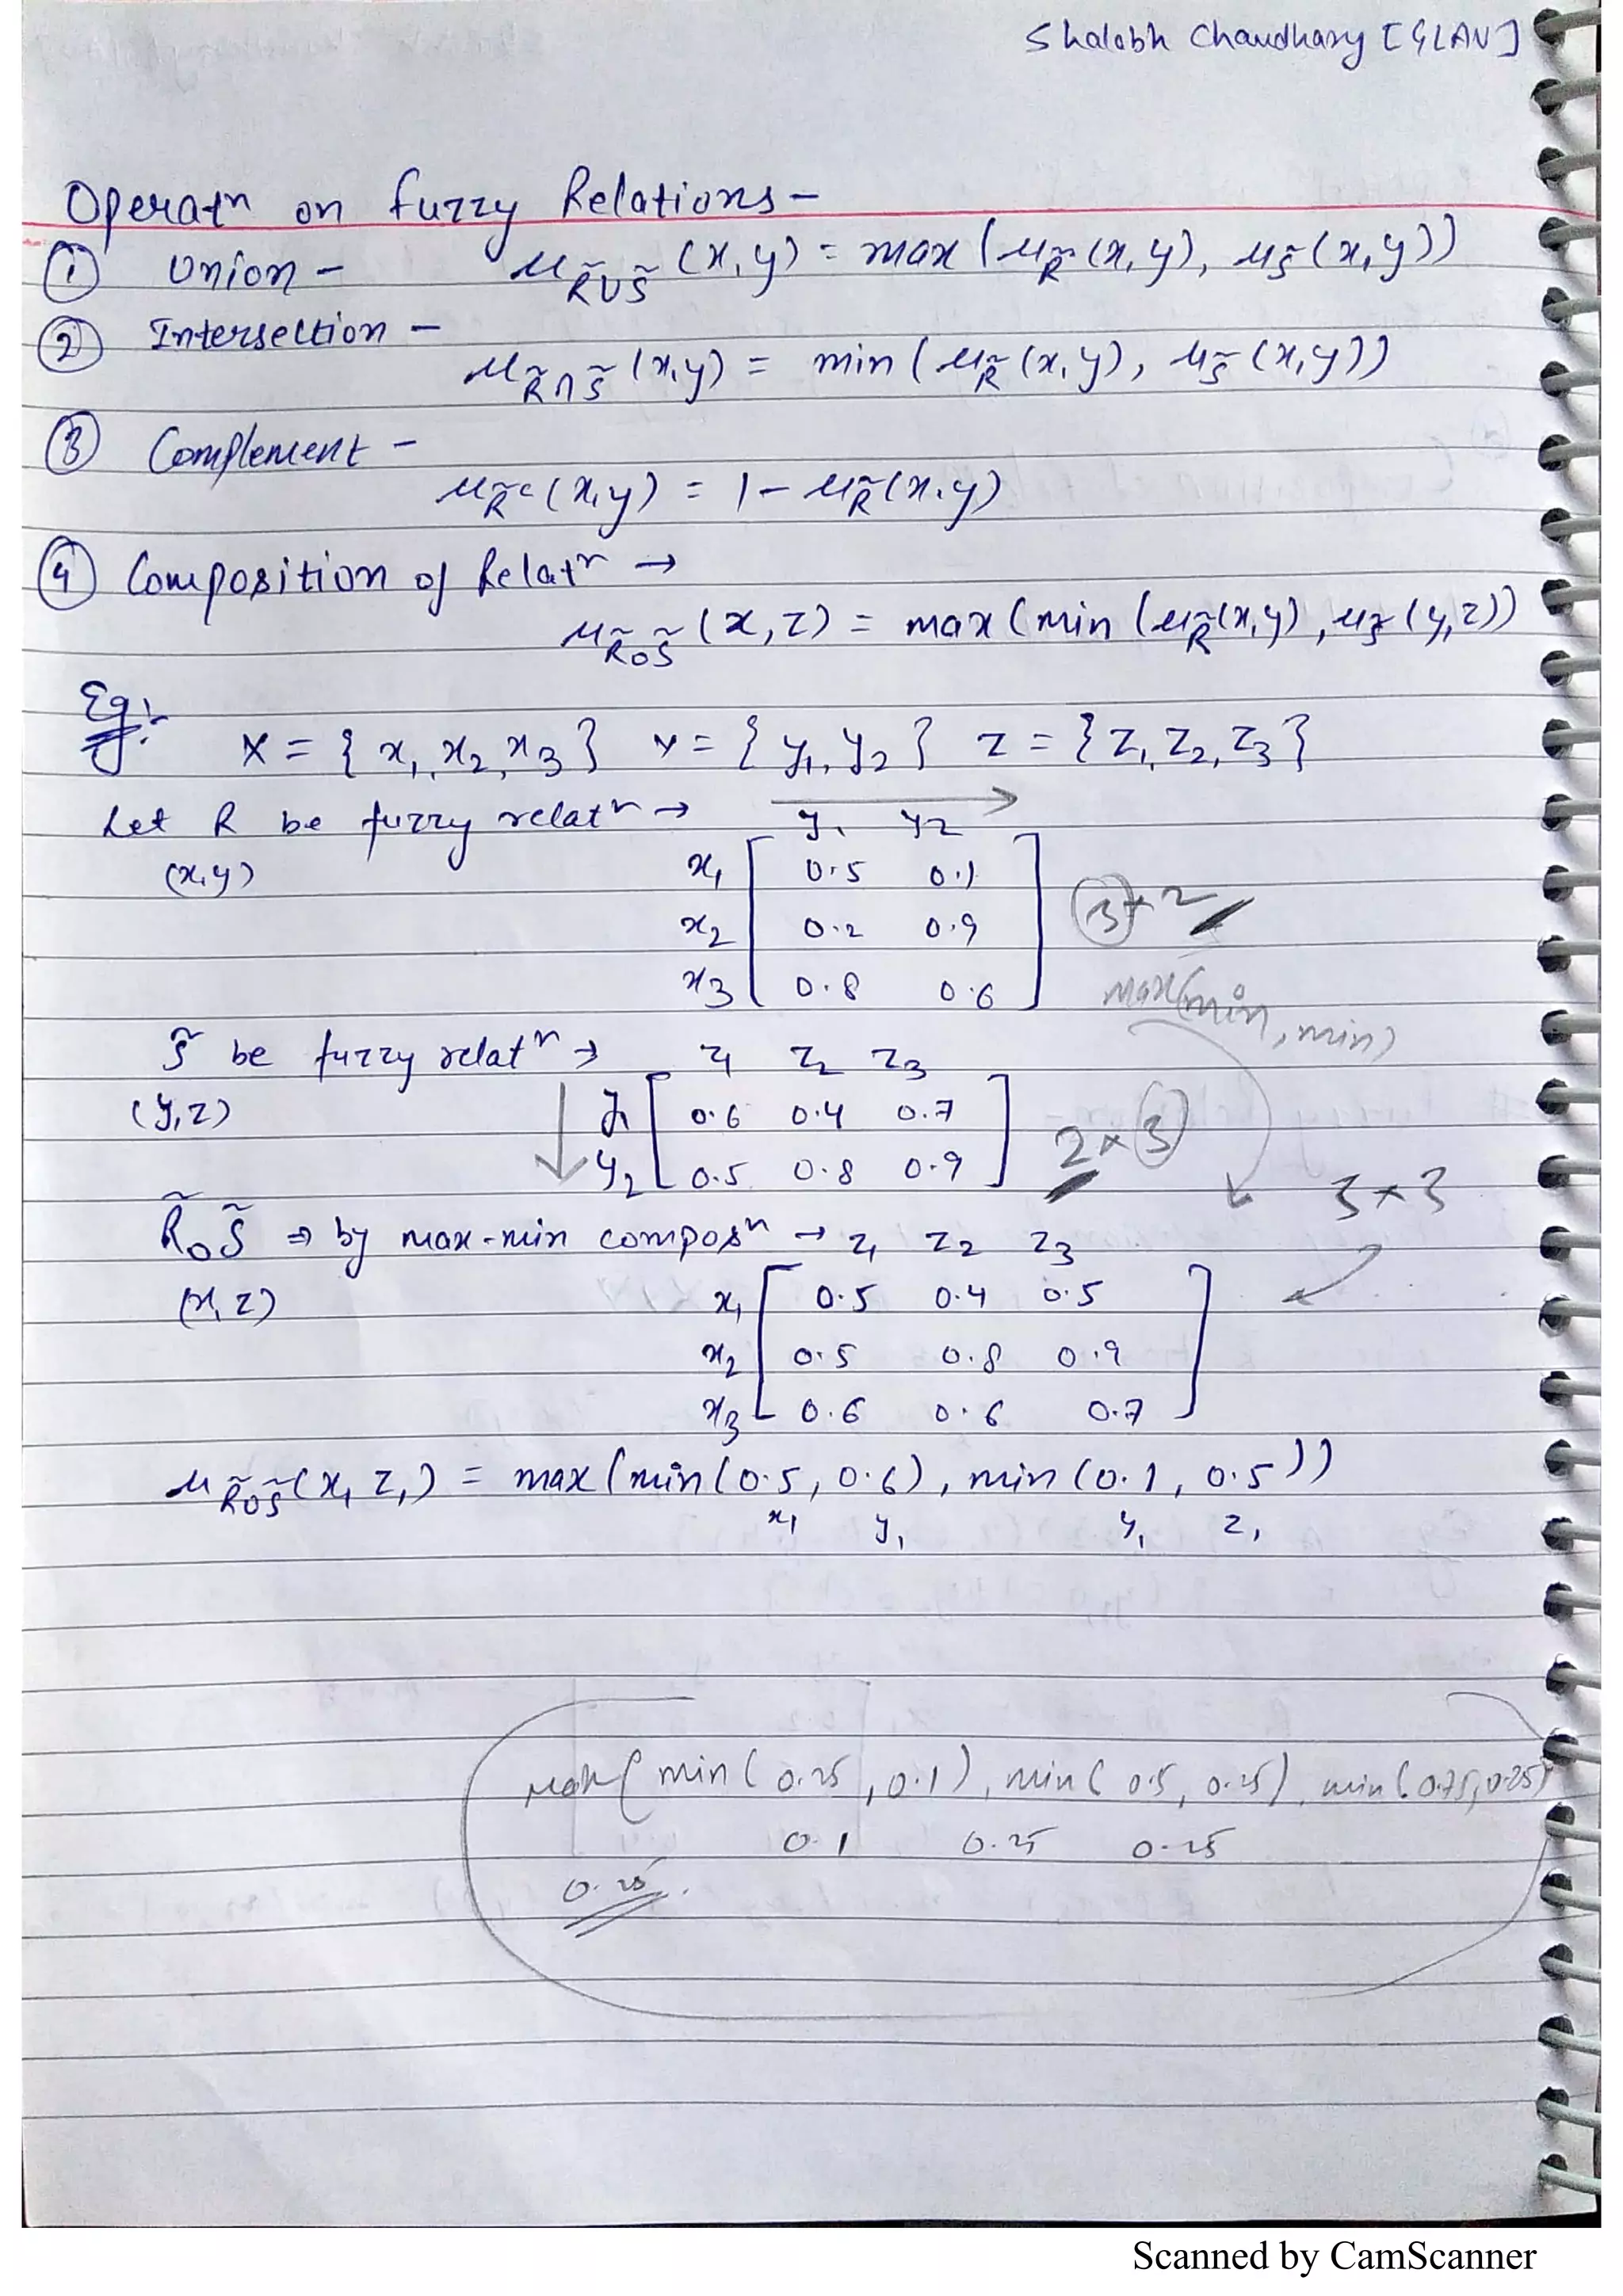 Shalabh Chaudhary [GLAU]
Operatn on fuzzy Relations -
① Union - μR̃∪S̃ (x,y) = max (μR̃ (x,y), μS̃ (x,y))
② Intersection -
μR̃∩S̃ (x,y) = min (μR̃ (x,y), μS̃ (x,y))
③ Complement -
μR̃ᶜ (x,y) = 1 - μR̃ (x,y)
④ Composition of Relatn →
μR̃∘S̃ (x,z) = max (min (μR̃(x,y), μS̃ (y,z))
Eg:-
X = { x₁, x₂, x₃ } Y = { y₁, y₂ } Z = { z₁, z₂, z₃ }
Let R be fuzzy relatn → y₁ y₂
(x,y) x₁ 0.5 0.1
x₂ 0.2 0.9 3×2
x₃ 0.8 0.6 max(min, min)
S̃ be fuzzy relatn → z₁ z₂ z₃
(y,z) y₁ 0.6 0.4 0.7
y₂ 0.5 0.8 0.9 2×3
3×3
R̃∘S̃ ⇒ by max-min composn → z₁ z₂ z₃
(x,z) x₁ 0.5 0.4 0.5
x₂ 0.5 0.8 0.9
x₃ 0.6 0.6 0.7
μR̃∘S̃ (x₁ z₁) = max (min (0.5, 0.6), min (0.1, 0.5))
x₁ y₁ y₁ z₁
max( min ( 0.25, 0.1), min ( 0.5, 0.25), min (0.75, 0.25)
0.1 0.25 0.25
0.25
Scanned by CamScanner